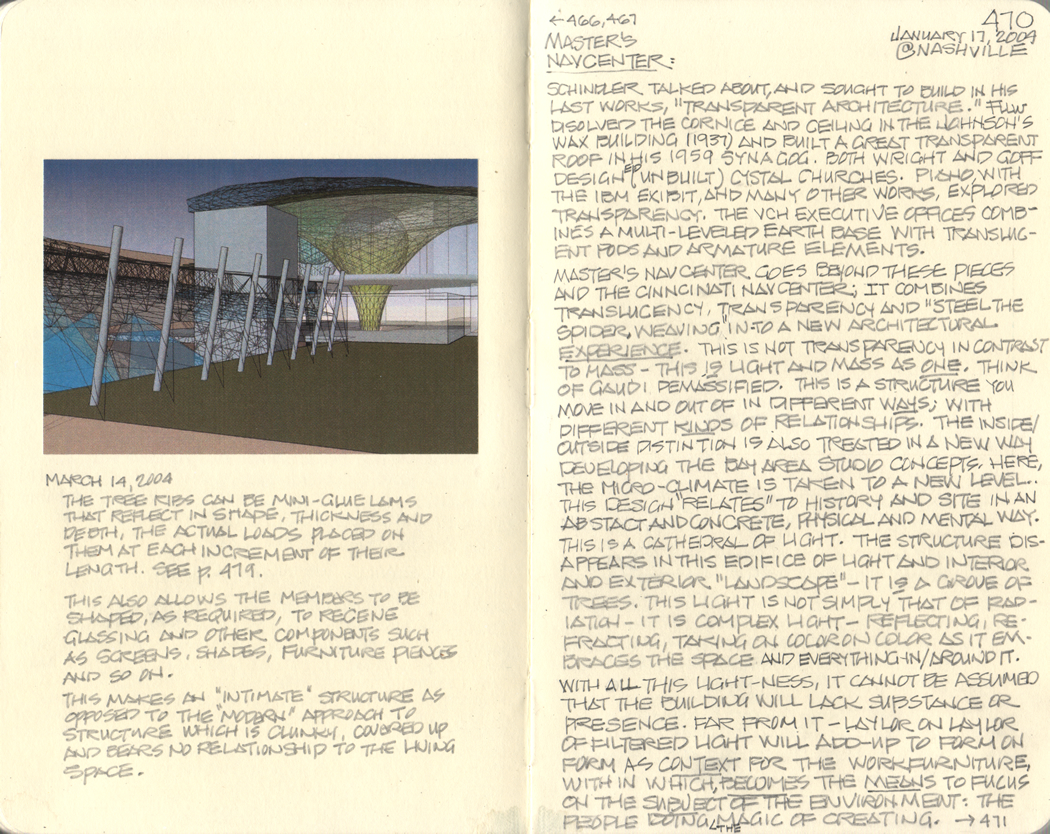 MARCH 14, 2004
THE TREE RIBS CAN BE MINI-GLUE LAMS
THAT REFLECT IN SHAPE, THICKNESS AND
DEBTH, THE ACTUAL LOADS PLACED ON
THEM AT EACH INCREMENT OF THEIR
LENGTH. SEE p. 479.
THIS ALSO ALLOWS THE MEMBERS TO BE
SHAPED, AS REQUIRED, TO RECEIVE
GLASSING AND OTHER COMPONENTS SUCH
AS SCREENS, SHADES, FURNITURE PIENCES
AND SO ON.
THIS MAKES AN "INTIMATE" STRUCTURE AS
OPPOSED TO THE "MODERN" APPROACH TO
STRUCTURE WHICH IS CLUNKY, COVERED UP
AND BEARS NO RELATIONSHIP TO THE LIVING
SPACE.
←466,467
470
MASTER'S
JANUARY 17, 2004
NAVCENTER:
@NASHVILLE
SCHINDLER TALKED ABOUT, AND SOUGHT TO BUILD IN HIS
LAST WORKS, "TRANSPARENT ARCHITECTURE." FLLW
DISOLVED THE CORNICE AND CEILING IN THE JOHNSON'S
WAX BUILDING (1937) AND BUILT A GREAT TRANSPARENT
ROOF IN HIS 1959 SYNAGOG. BOTH WRIGHT AND GOFF
DESIGNED (UNBUILT) CYSTAL CHURCHES. PIANO, WITH
THE IBM EXIBIT, AND MANY OTHER WORKS, EXPLORED
TRANSPARENCY. THE VCH EXECUTIVE OFFICES COMB-
INES A MULTI-LEVELED EARTH BASE WITH TRANSLUC-
ENT PODS AND ARMATURE ELEMENTS.
MASTER'S NAVCENTER GOES BEYOND THESE PIECES
AND THE CINNCINATI NAVCENTER; IT COMBINES
TRANSLUCENCY, TRANSPARENCY AND "STEEL THE
SPIDER, WEAVING" IN-TO A NEW ARCHITECTURAL
EXPERIENCE. THIS IS NOT TRANSPARENCY IN CONTRAST
TO MASS - THIS IS LIGHT AND MASS AS ONE. THINK
OF GAUDI DEMASSIFIED. THIS IS A STRUCTURE YOU
MOVE IN AND OUT OF IN DIFFERENT WAYS; WITH
DIFFERENT KINDS OF RELATIONSHIPS. THE INSIDE/
OUTSIDE DISTINTION IS ALSO TREATED IN A NEW WAY
DEVELOPING THE BAY AREA STUDIO CONCEPTS. HERE,
THE MICRO-CLIMATE IS TAKEN TO A NEW LEVEL.
THIS DESIGN "RELATES" TO HISTORY AND SITE IN AN
ABSTACT AND CONCRETE, PHYSICAL AND MENTAL WAY.
THIS IS A CATHEDRAL OF LIGHT. THE STRUCTURE DIS-
APPEARS IN THIS EDIFICE OF LIGHT AND INTERIOR
AND EXTERIOR "LANDSCAPE" - IT IS A GROVE OF
TREES. THIS LIGHT IS NOT SIMPLY THAT OF RAD-
IATION - IT IS COMPLEX LIGHT - REFLECTING, RE-
FRACTING, TAKING ON COLOR ON COLOR AS IT EM-
BRACES THE SPACE AND EVERYTHING IN/AROUND IT.
WITH ALL THIS LIGHT-NESS, IT CANNOT BE ASSUMED
THAT THE BUILDING WILL LACK SUBSTANCE OR
PRESENCE. FAR FROM IT - LAYLOR ON LAYLOR
OF FILTERED LIGHT WILL ADD-UP TO FORM ON
FORM AS CONTEXT FOR THE WORKFURNITURE,
WITH IN WHICH, BECOMES THE MEANS TO FUCUS
ON THE SUBJECT OF THE ENVIRONMENT: THE
PEOPLE DOING THE MAGIC OF CREATING. →471